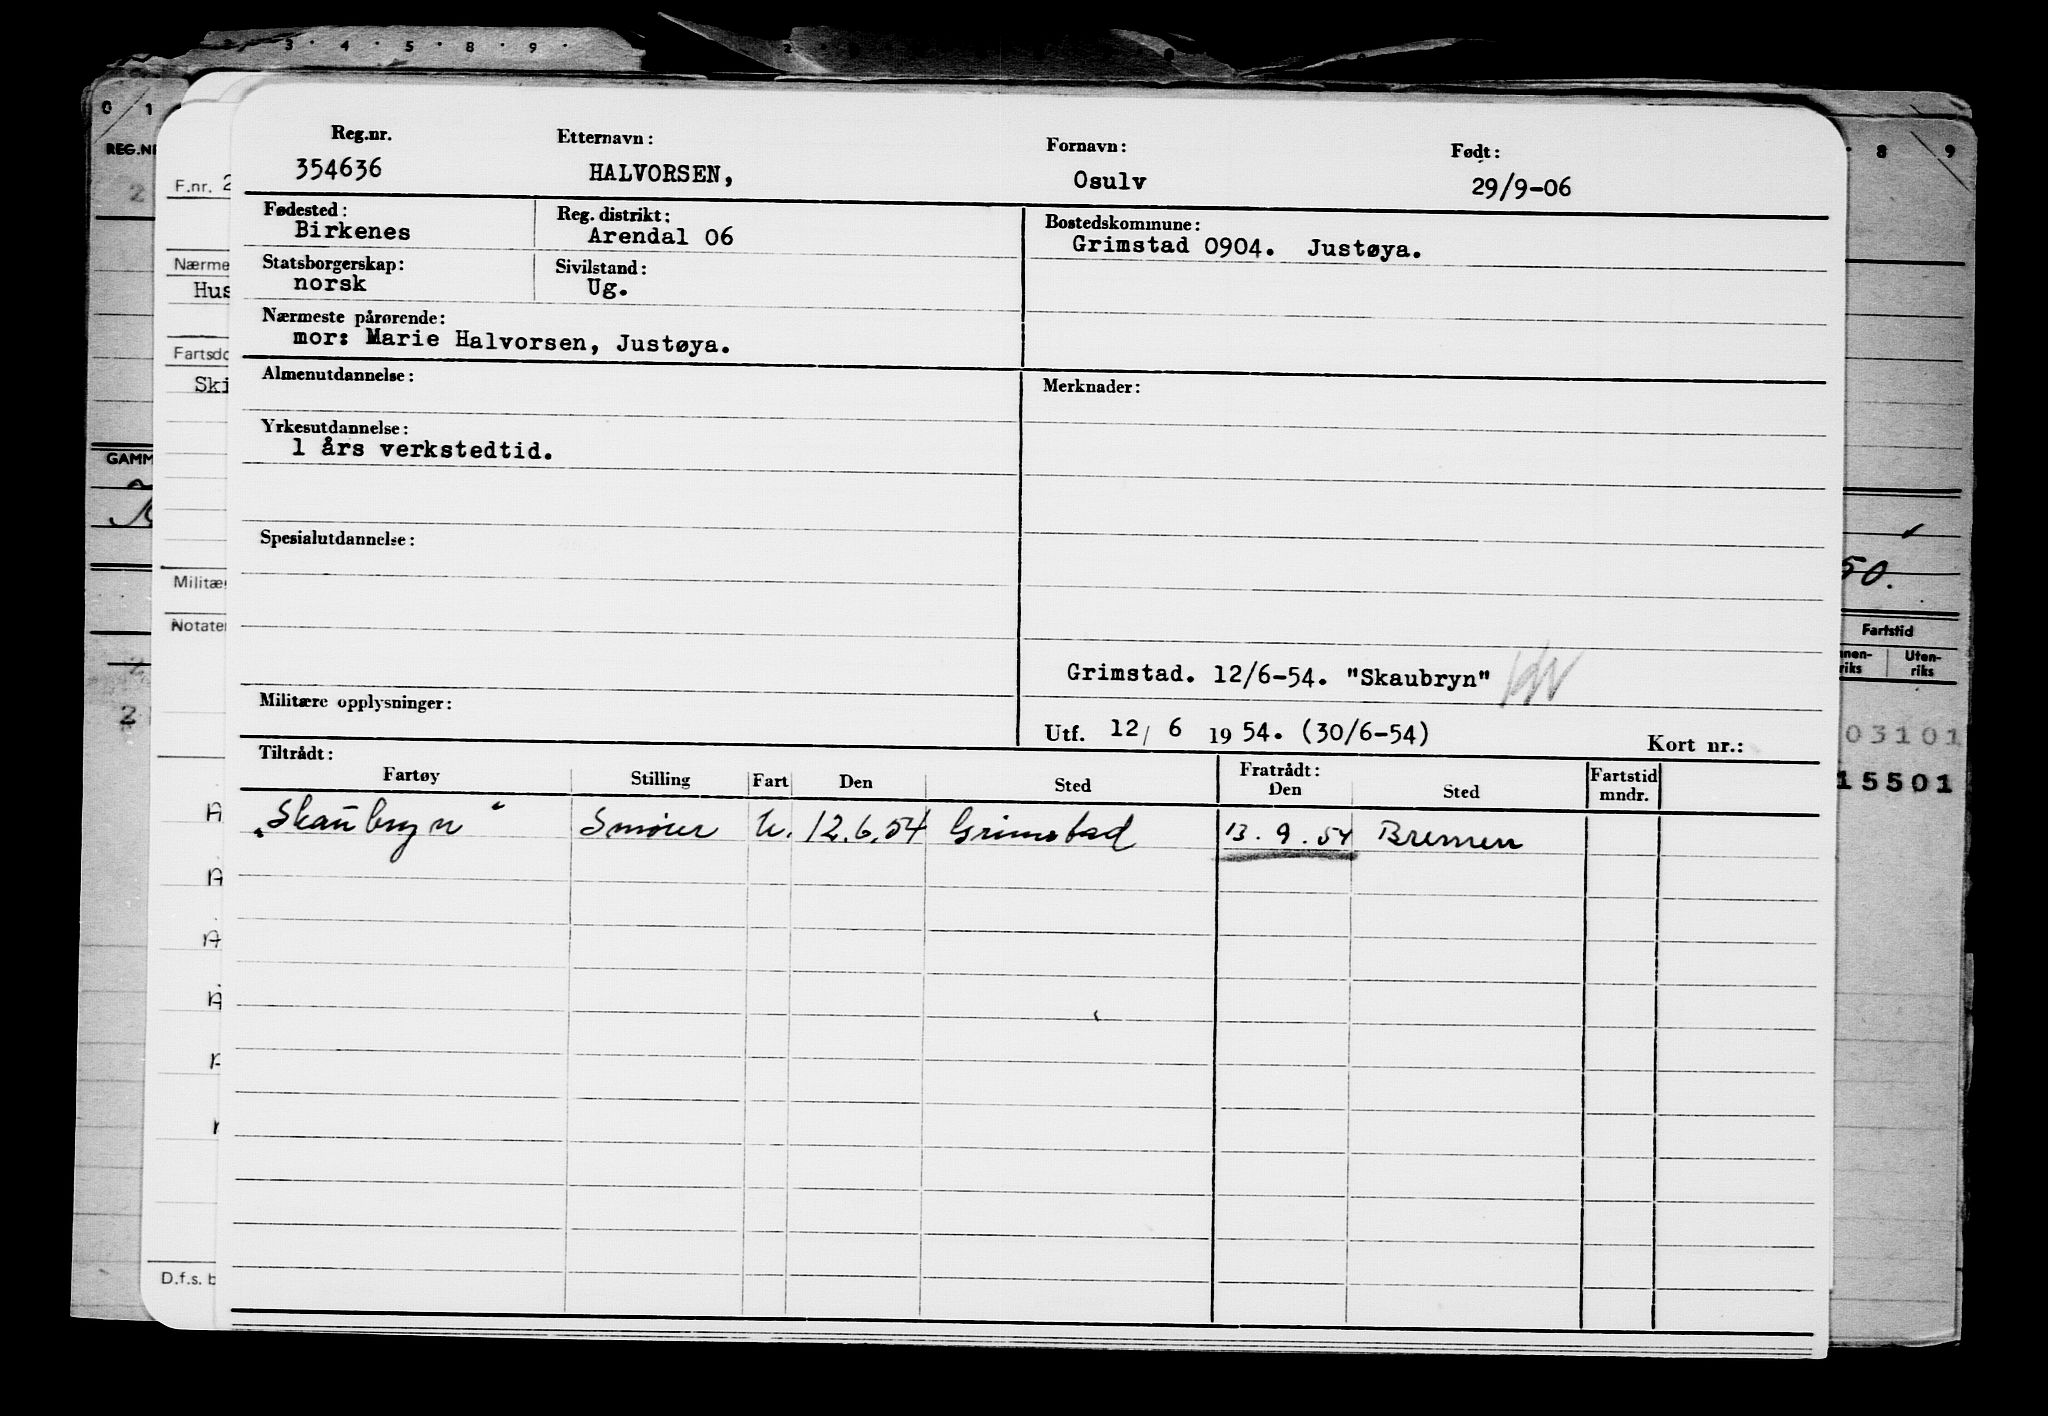 3 · 4 · 5 · 8 · 9 ·
0 1
8 9
REG.NR
2
F.nr. 2
Nærme
Hus
Fartsdo
Ski
GAMM
Militær
Notater
2
D.f.s. b
Reg.nr. Etternavn: Fornavn: Født:
354636 HALVORSEN, Osulv 29/9-06
Fødested: Reg. distrikt: Bostedskommune:
Birkenes Arendal 06 Grimstad 0904. Justøya.
Statsborgerskap: Sivilstand:
norsk Ug.
Nærmeste pårørende:
mor: Marie Halvorsen, Justøya.
Almenutdannelse: Merknader:
Yrkesutdannelse:
1 års verkstedtid.
Spesialutdannelse:
Grimstad. 12/6-54. "Skaubryn"
Militære opplysninger:
Utf. 12/ 6 1954. (30/6-54) Kort nr.:
Tiltrådt: Fratrådt:
Fartøy Stilling Fart Den Sted Den Sted Fartstid mndr.
"Skaubryn" Smører U. 12.6.54 Grimstad 13.9.54 Bremen
50.
Fartstid
nnen-riks Uten-riks
03101
15501